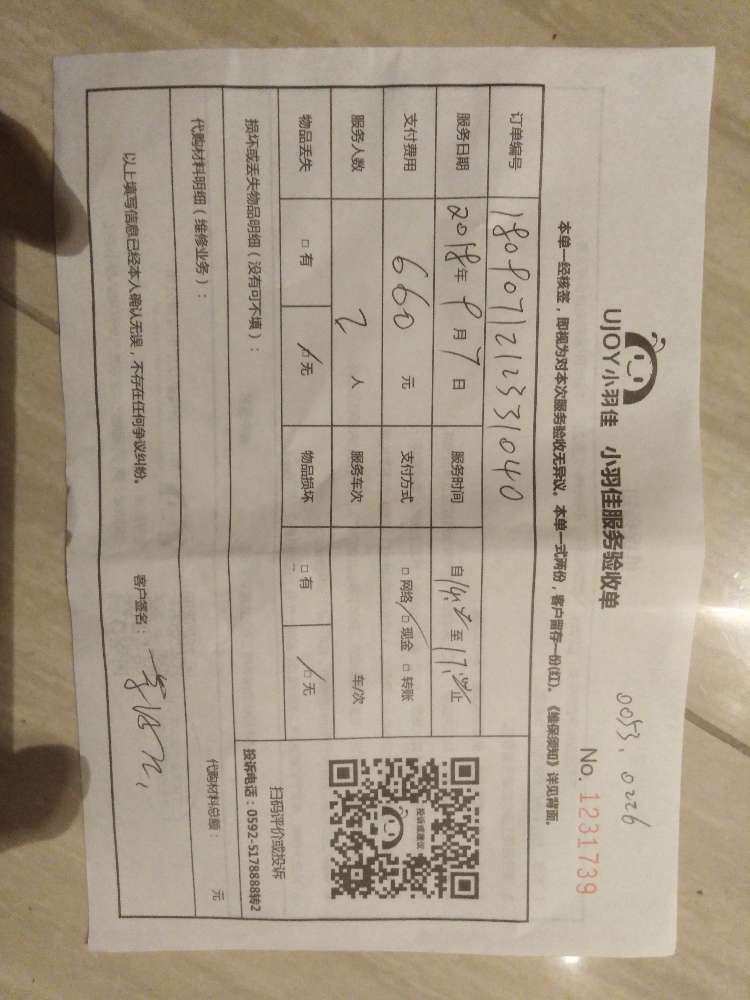 0053, 0226
UJOY小羽佳 小羽佳服务验收单
No. 1231739
本单一经核签，即视为对本次服务验收无异议。本单一式两份，客户留存一份(红)。《维保须知》详见背面。
订单编号 1809071212331040
服务日期 2018年9月7日 服务时间 自14:00至17:00止
支付费用 660元 支付方式 □网络 □现金 □转账
服务人数 2人 服务车次 车/次
物品丢失 □有 □无 物品损坏 □有 □无
投诉或建议
扫码评价或投诉
投诉电话：0592-5178888转2
损坏或丢失物品明细（没有可不填）：
代购材料明细（维修业务）：
代购材料总额： 元
以上填写信息已经本人确认无误，不存在任何争议纠纷。 客户签名：